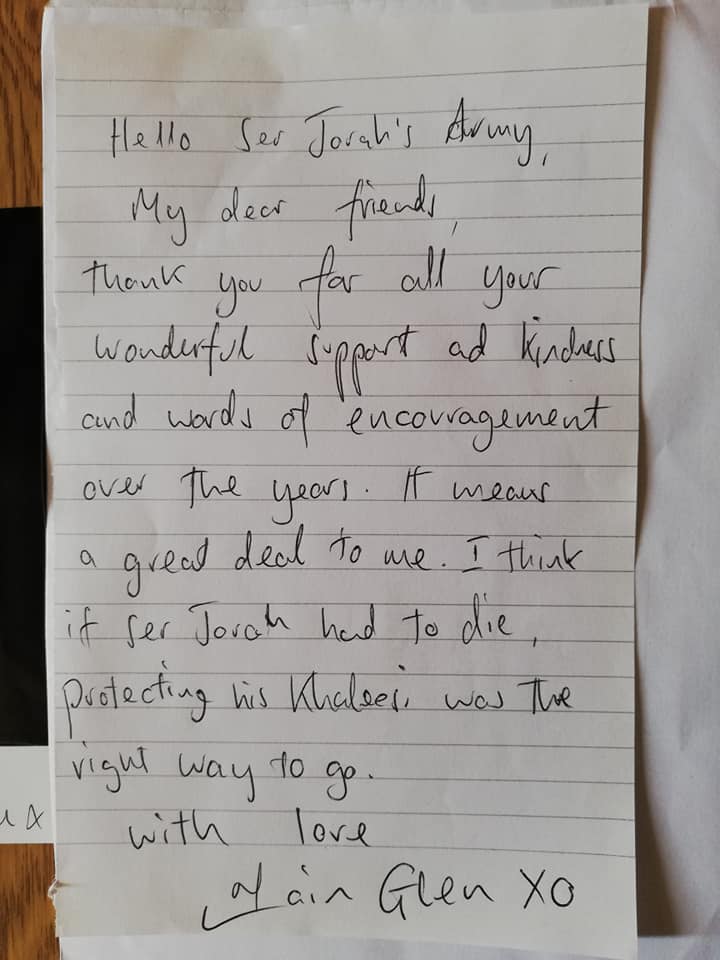 Hello Ser Jorah's Army,
My dear friends,
thank you for all your
wonderful support ad kindness
and words of encouragement
over the years. It means
a great deal to me. I think
if Ser Jorah had to die,
protecting his Khaleesi was the
right way to go.
with love
Iain Glen XO